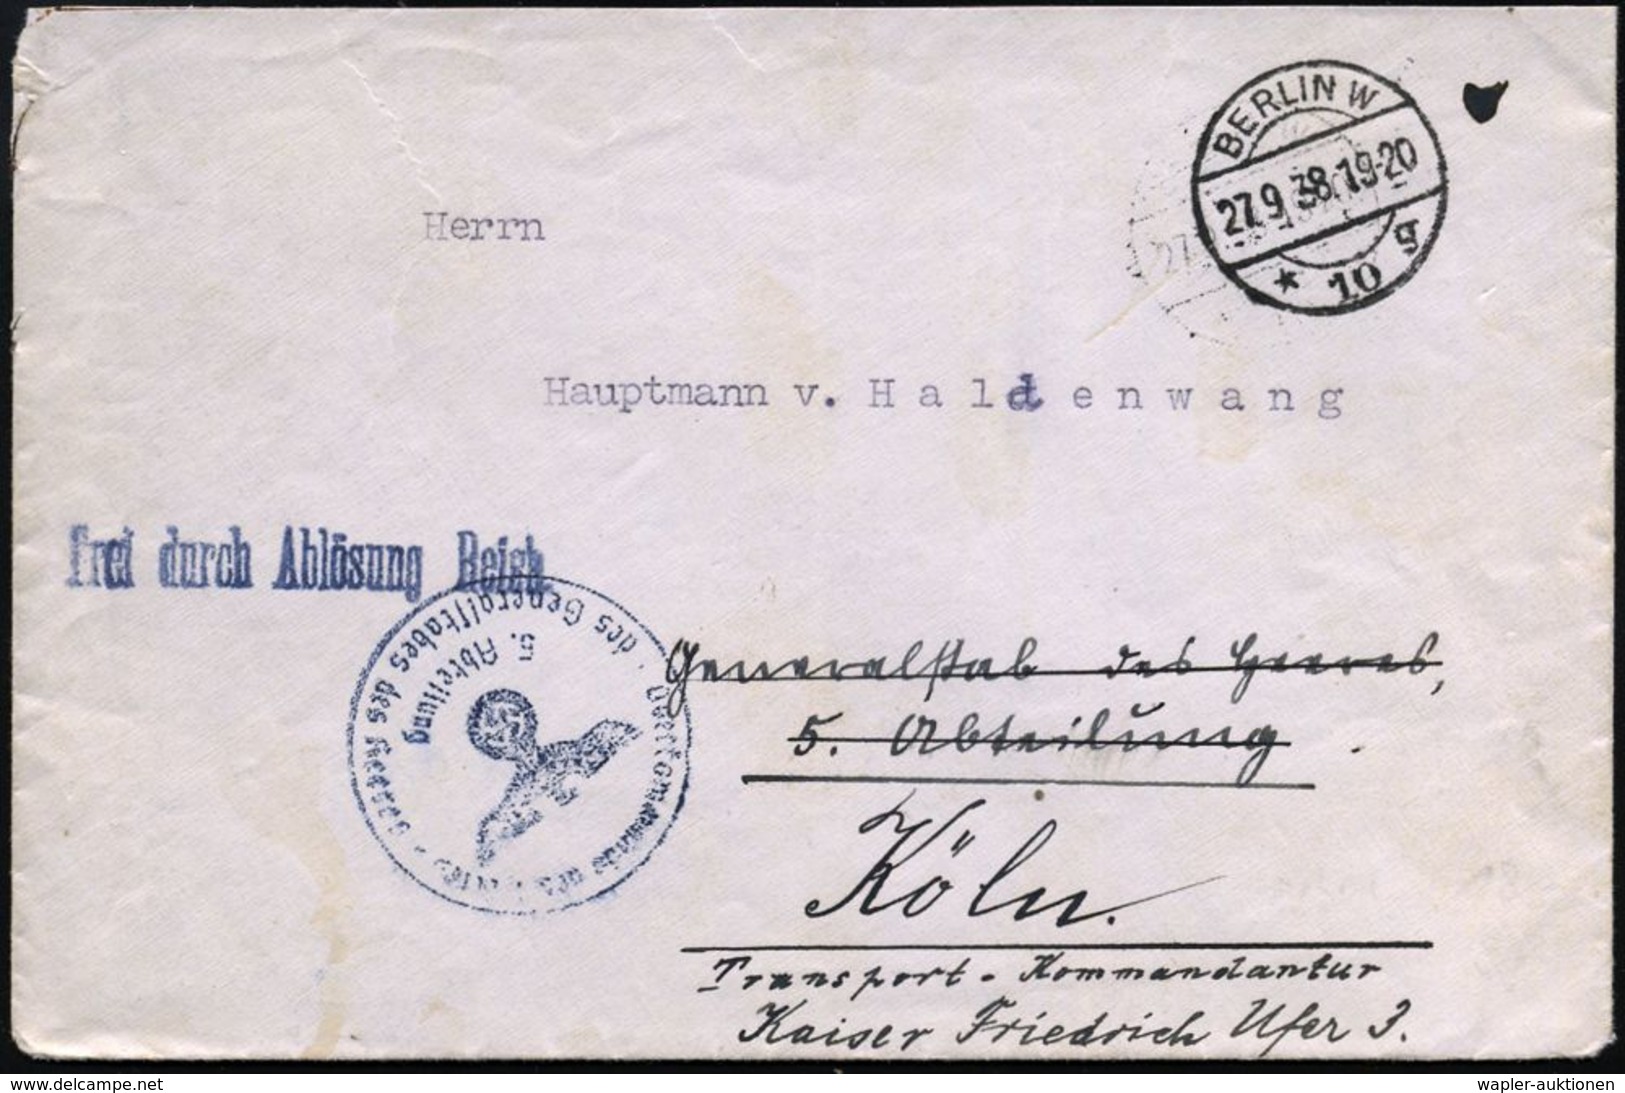 BERLIN W
27.9.38.19-20
* 10 g
Herrn
Hauptmann v. Haldenwang
Frei durch Ablösung Reich.
Oberkommando des Heeres
des Generalstabes des Heeres
5. Abteilung
Generalstab des Heeres,
5. Abteilung
Köln.
Transport-Kommandantur
Kaiser Friedrich Ufer 3.
www.delcampe.net
wapler-auktionen